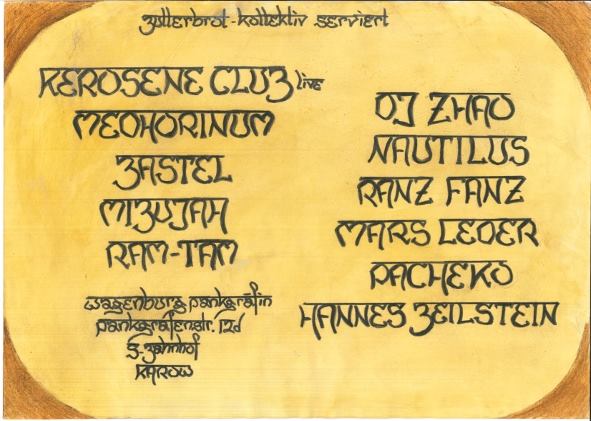 Butterbrot-kollektiv serviert
KEROSENE CLUB live
MEDHORINUM
BASTEL
MIBUJAH
RAM-TAM
wagenburg pankgräfin
pankgrafenstr. 12d
S-Bahnhof
KAROW
DJ ZHAO
NAUTILUS
RANZ FANZ
MARS LEDER
PACHEKO
HANNES BEILSTEIN